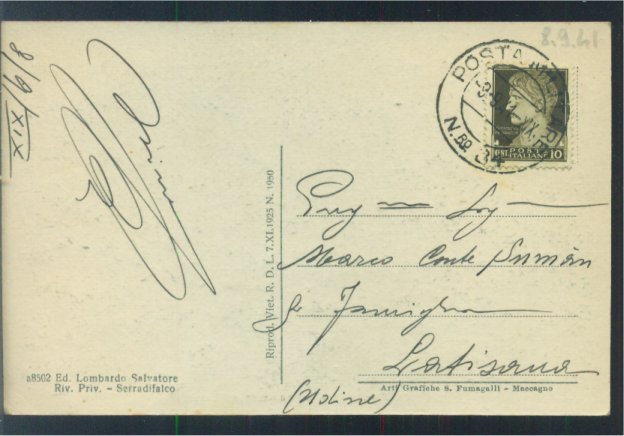 8.9.41
8/9/XIX
POSTA MIL
N.RO 34
POSTE ITALIANE 10
Riprod. Viet. R. D. L. 7.XI.1925 N. 1950
Marco Conte
e Famiglia
Latisana
(Udine)
a8502 Ed. Lombardo Salvatore
Riv. Priv. - Serradifalco
Arti Grafiche S. Fumagalli - Maccagno